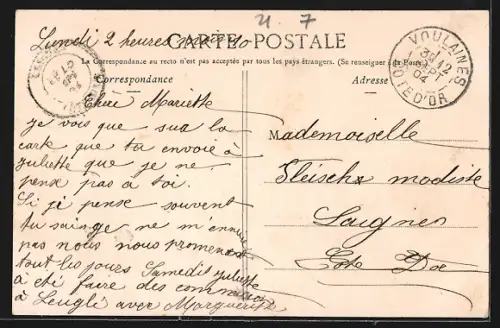 4. 7
Lundi 2 heures moins 10
CARTE POSTALE
La Correspondance au recto n'est pas acceptée par tous les pays étrangers. (Se renseigner à la Poste.)
Correspondance
Adresse
VOULAINES
12
SEPT
04
COTE D'OR
Chère Mariette
je vois que sur la
carte que ta envoié à
juliette que je ne
pense pas a toi.
Si je pense souvent
tu sais je ne m'ennuie
pas nous nous promenons
tout les jours Samedis juliette
a été faire des commissions
à Leuglé avec Marguerite
Mademoiselle
modiste
Laignes
Cote D'or